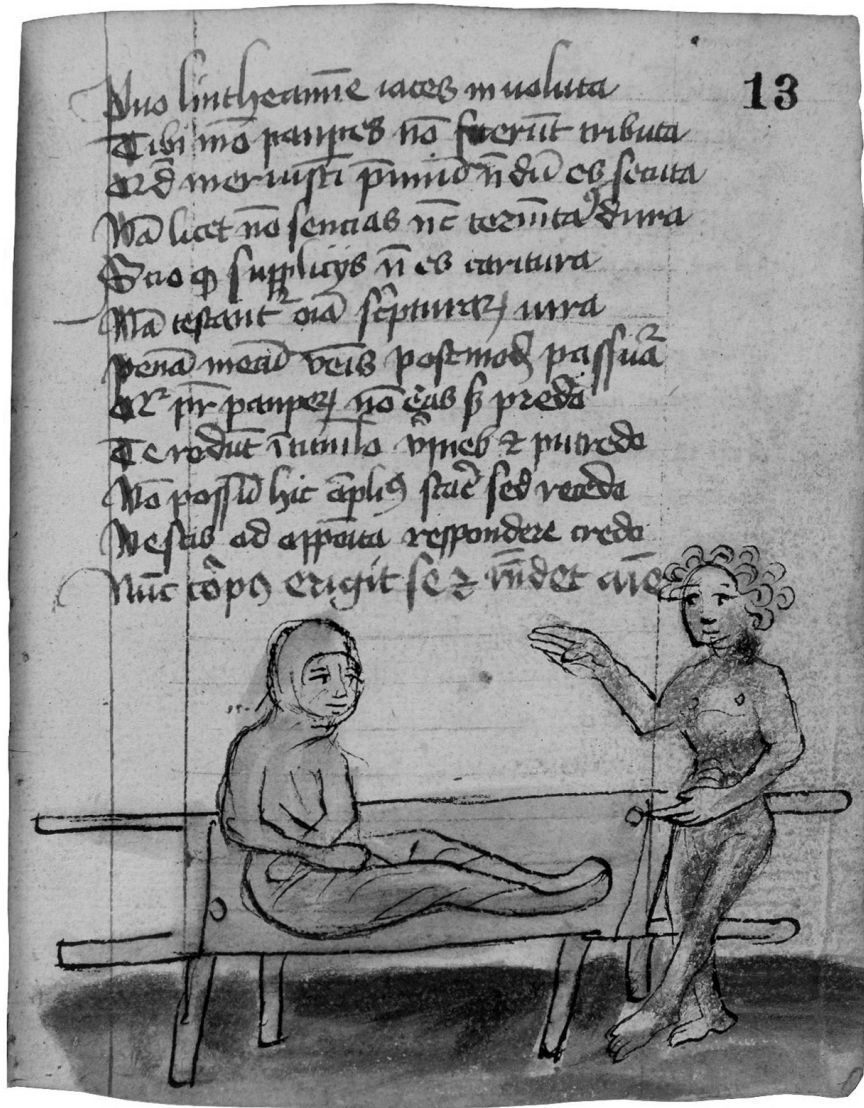 13
Duo lintheamine iaces inuoluta
Tibi mō paupes nō fuerūt tributa
Qđ meruisti p̄miū n̄ diu es secuta
Nā licet nō sencias nc̄ tormīta dura
Scio ꝙ supplicijs n̄ es caritura
Nā testant᷑ oīa sc̓pturaꝝ iura
penā mecū postmoꝺ passura
pr̄ paupeꝝ nō p̄do
Te rodūt ī tumulo v̓mes ⁊ putredo
Nō possū hic āpliꝰ star̄ sed recedo
Nescis ad apposita respondere credo
Nūc corpꝰ erigit se ⁊ rn̄det aīe